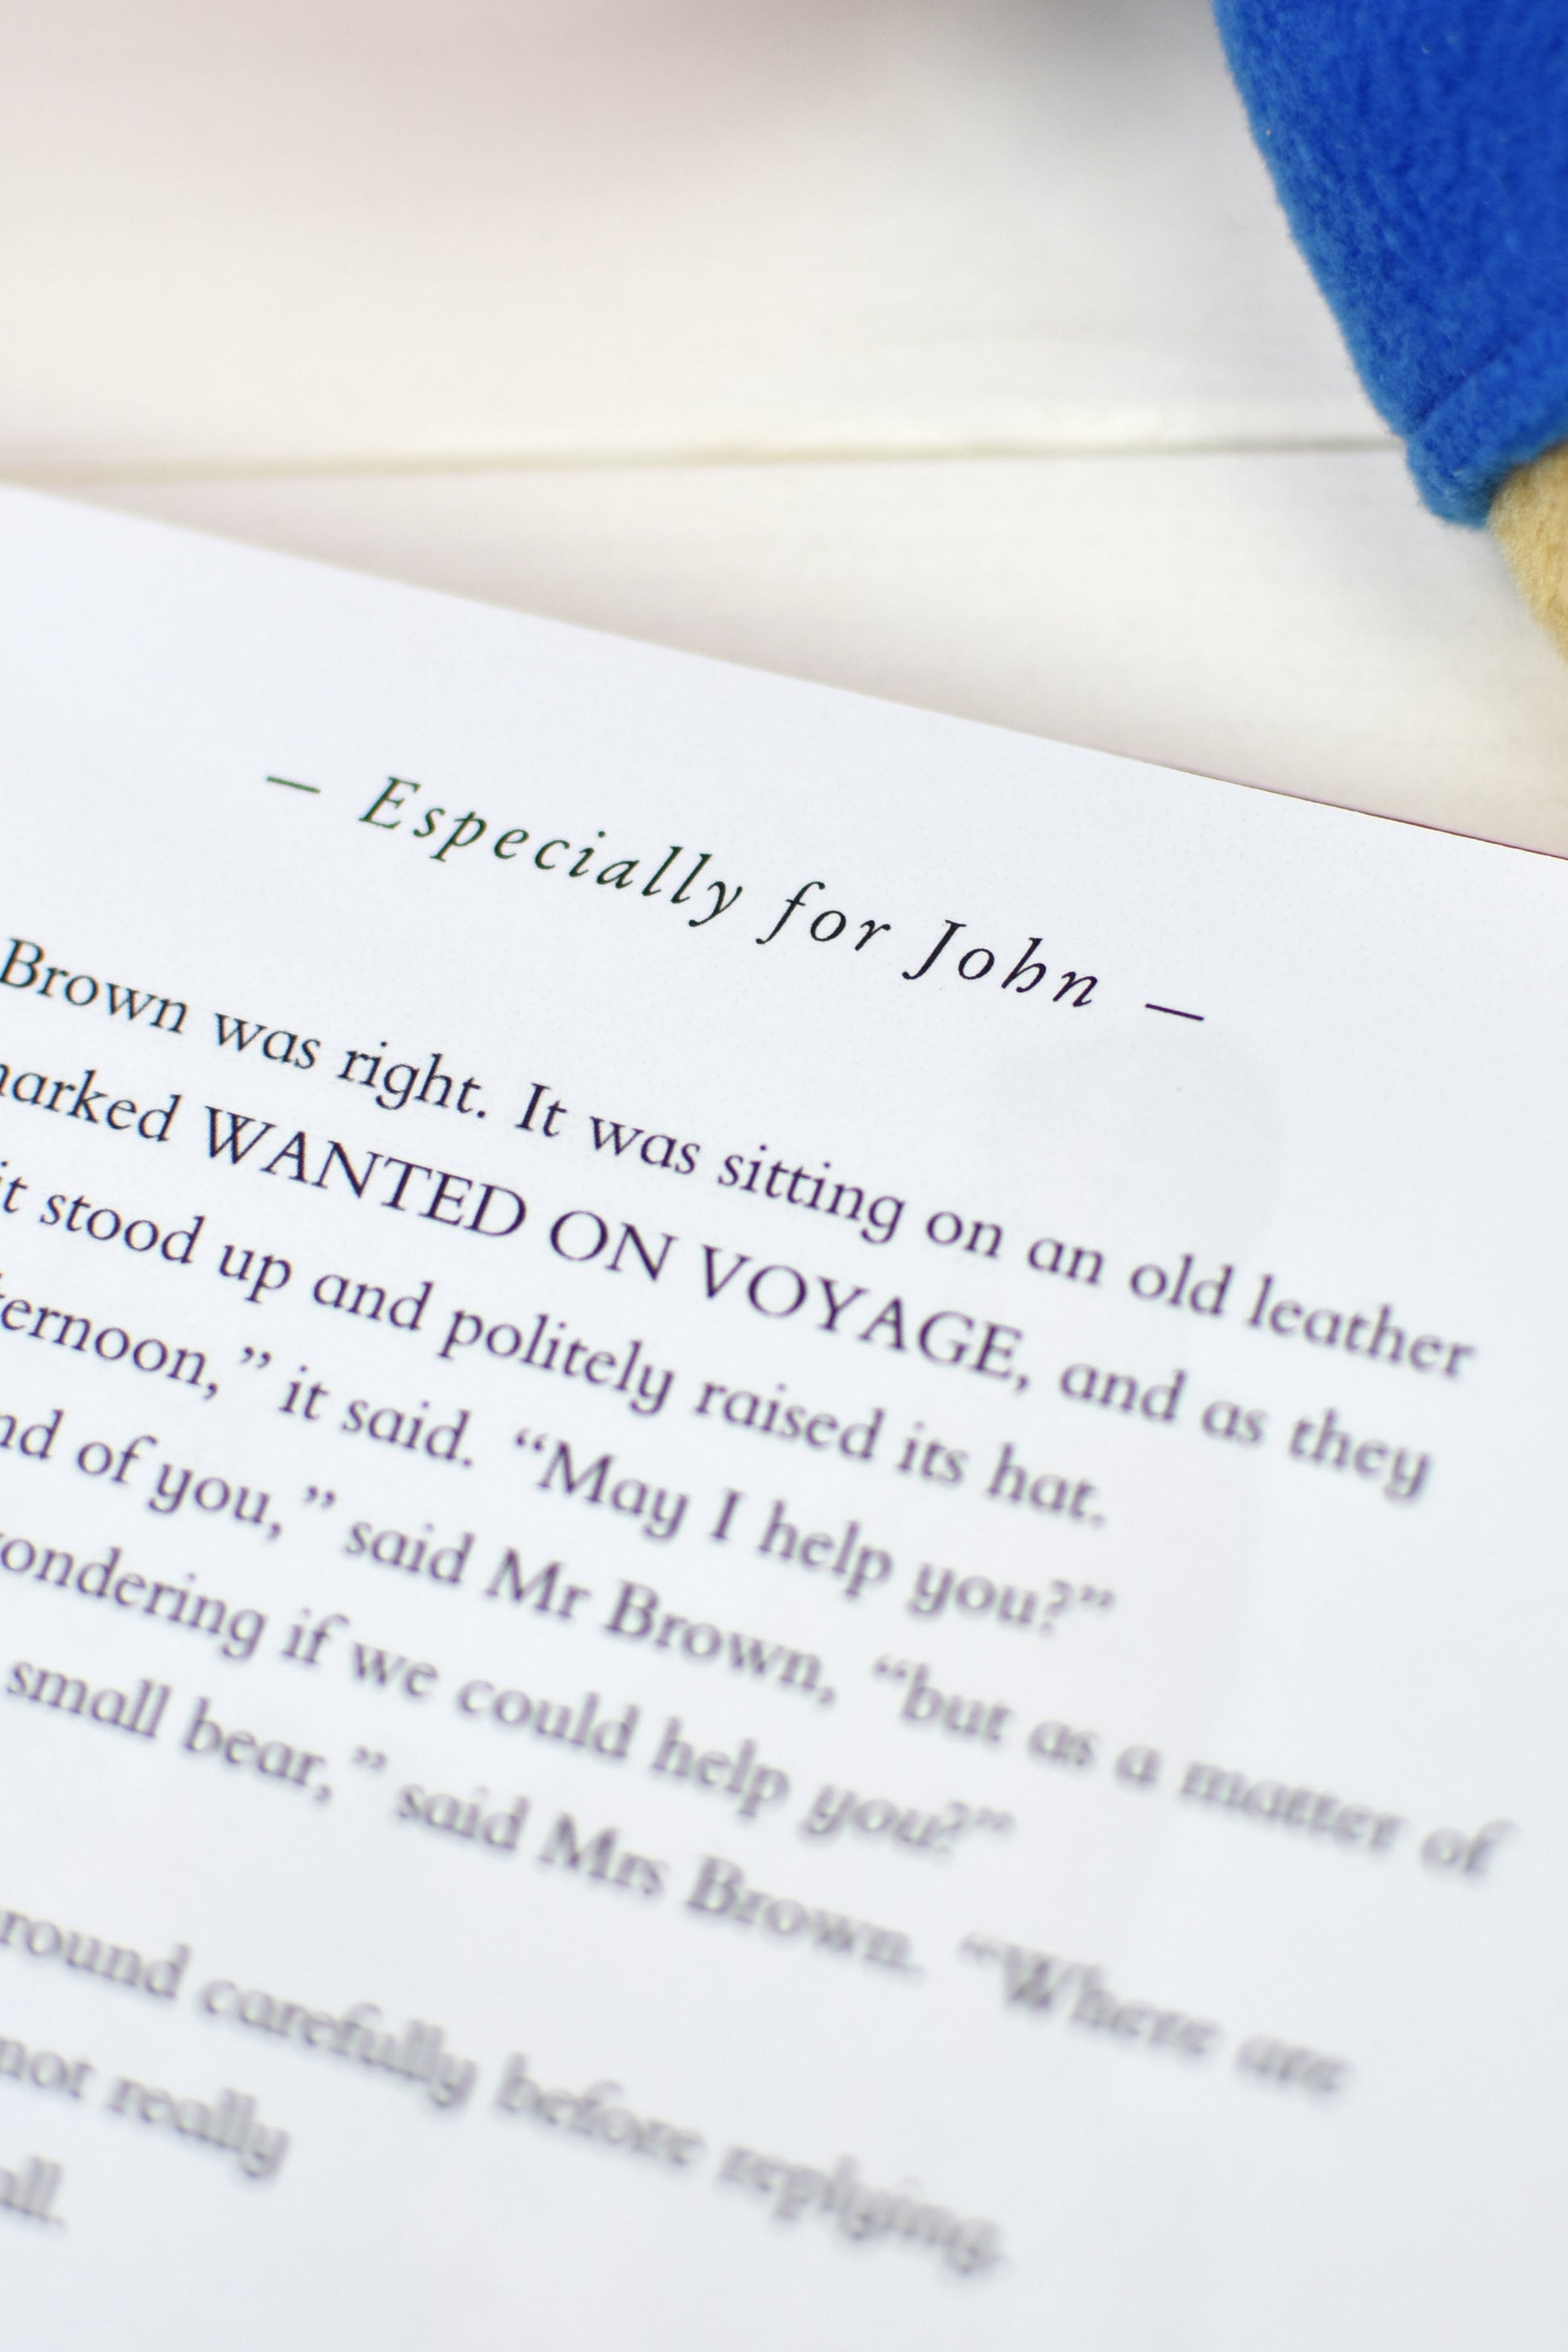 — Especially for John —
Brown was right. It was sitting on an old leather
marked WANTED ON VOYAGE, and as they
it stood up and politely raised its hat.
ernoon,” it said. “May I help you?”
nd of you,” said Mr Brown, “but as a matter of
ondering if we could help you?”
small bear,” said Mrs Brown. “Where are
round carefully before replying.
not really
all.